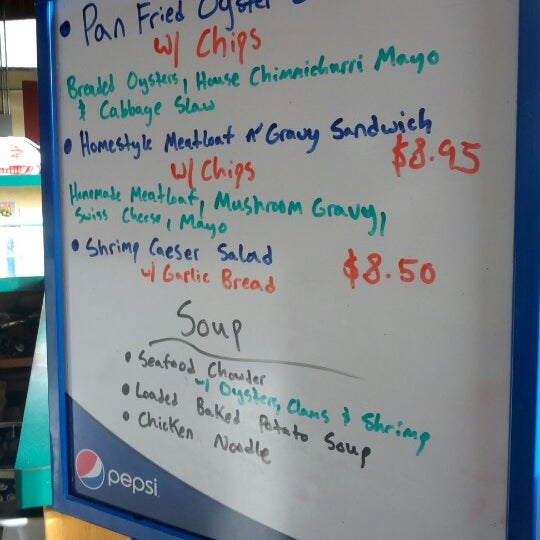 • Pan Fried Oyster
w/ Chips
Breaded Oysters, House Chimmicharri Mayo
& Cabbage Slaw
• Homestyle Meatloaf n' Gravy Sandwich
w/ Chips $8.95
Homemade Meatloaf, Mushroom Gravy,
Swiss Cheese, Mayo
• Shrimp Caeser Salad
w/ Garlic Bread $8.50
Soup
• Seafood Chowder
w/ Oysters, Clams & Shrimp
• Loaded Baked Potato Soup
• Chicken Noodle
pepsi